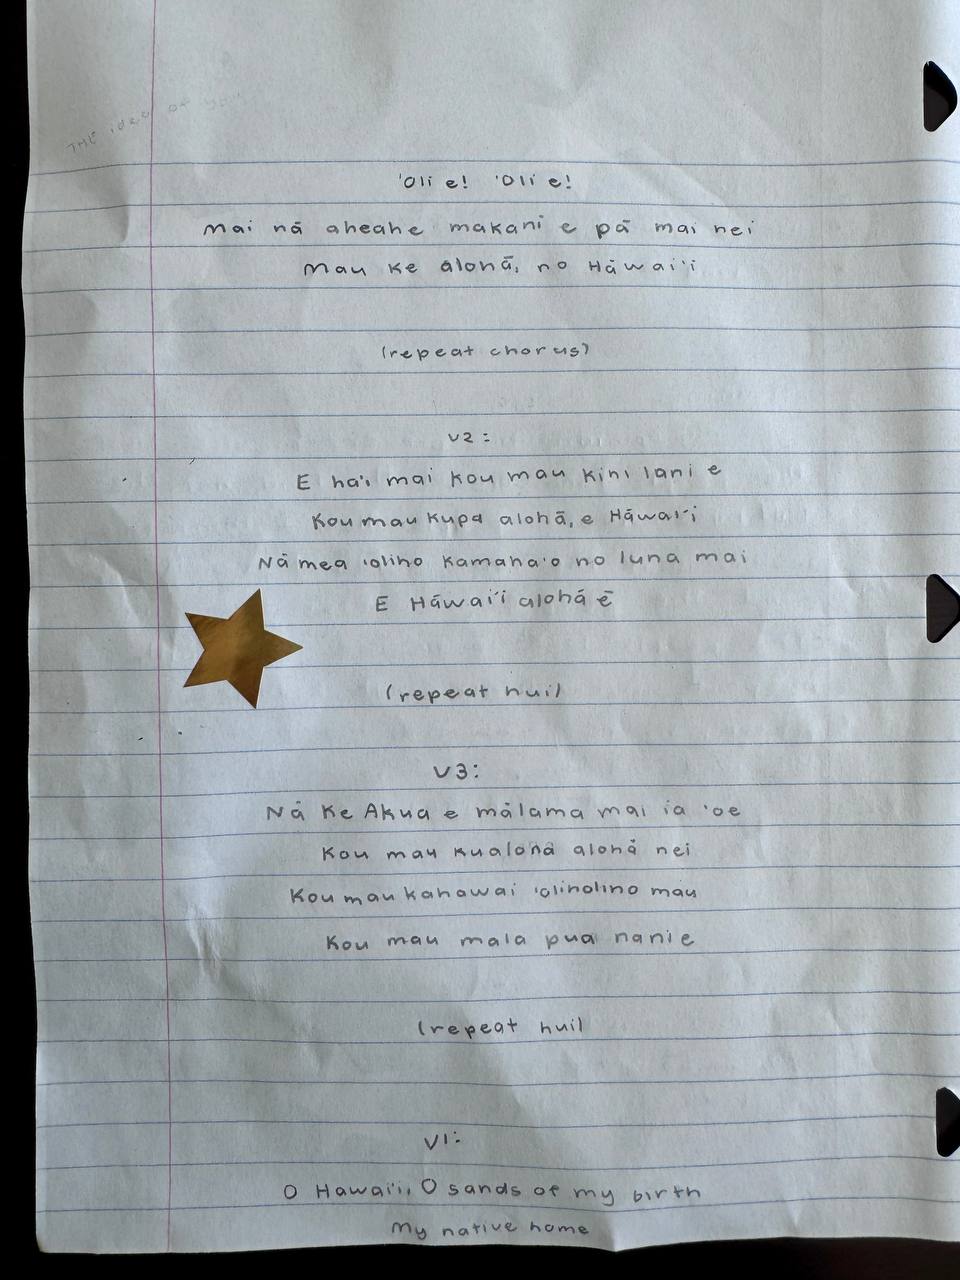 THE idea of you
'Oli e! 'Oli e!
Mai nā aheahe makani e pā mai nei
Mau ke alohā, no Hāwai'i
(repeat chorus)
V2:
E ha'i mai kou mau kini lani e
Kou mau kupa alohā, e Hāwai'i
Nā mea 'oliho kamaha'o no luna mai
E Hāwai'i alohā ē
(repeat hui)
V3:
Nā ke Akua e mālama mai ia 'oe
Kou mau kualonā alohā nei
Kou mau kahawai 'olinolino mau
Kou mau mala pua nani e
(repeat hui)
V1:
O Hawai'i, O sands of my birth
My native home